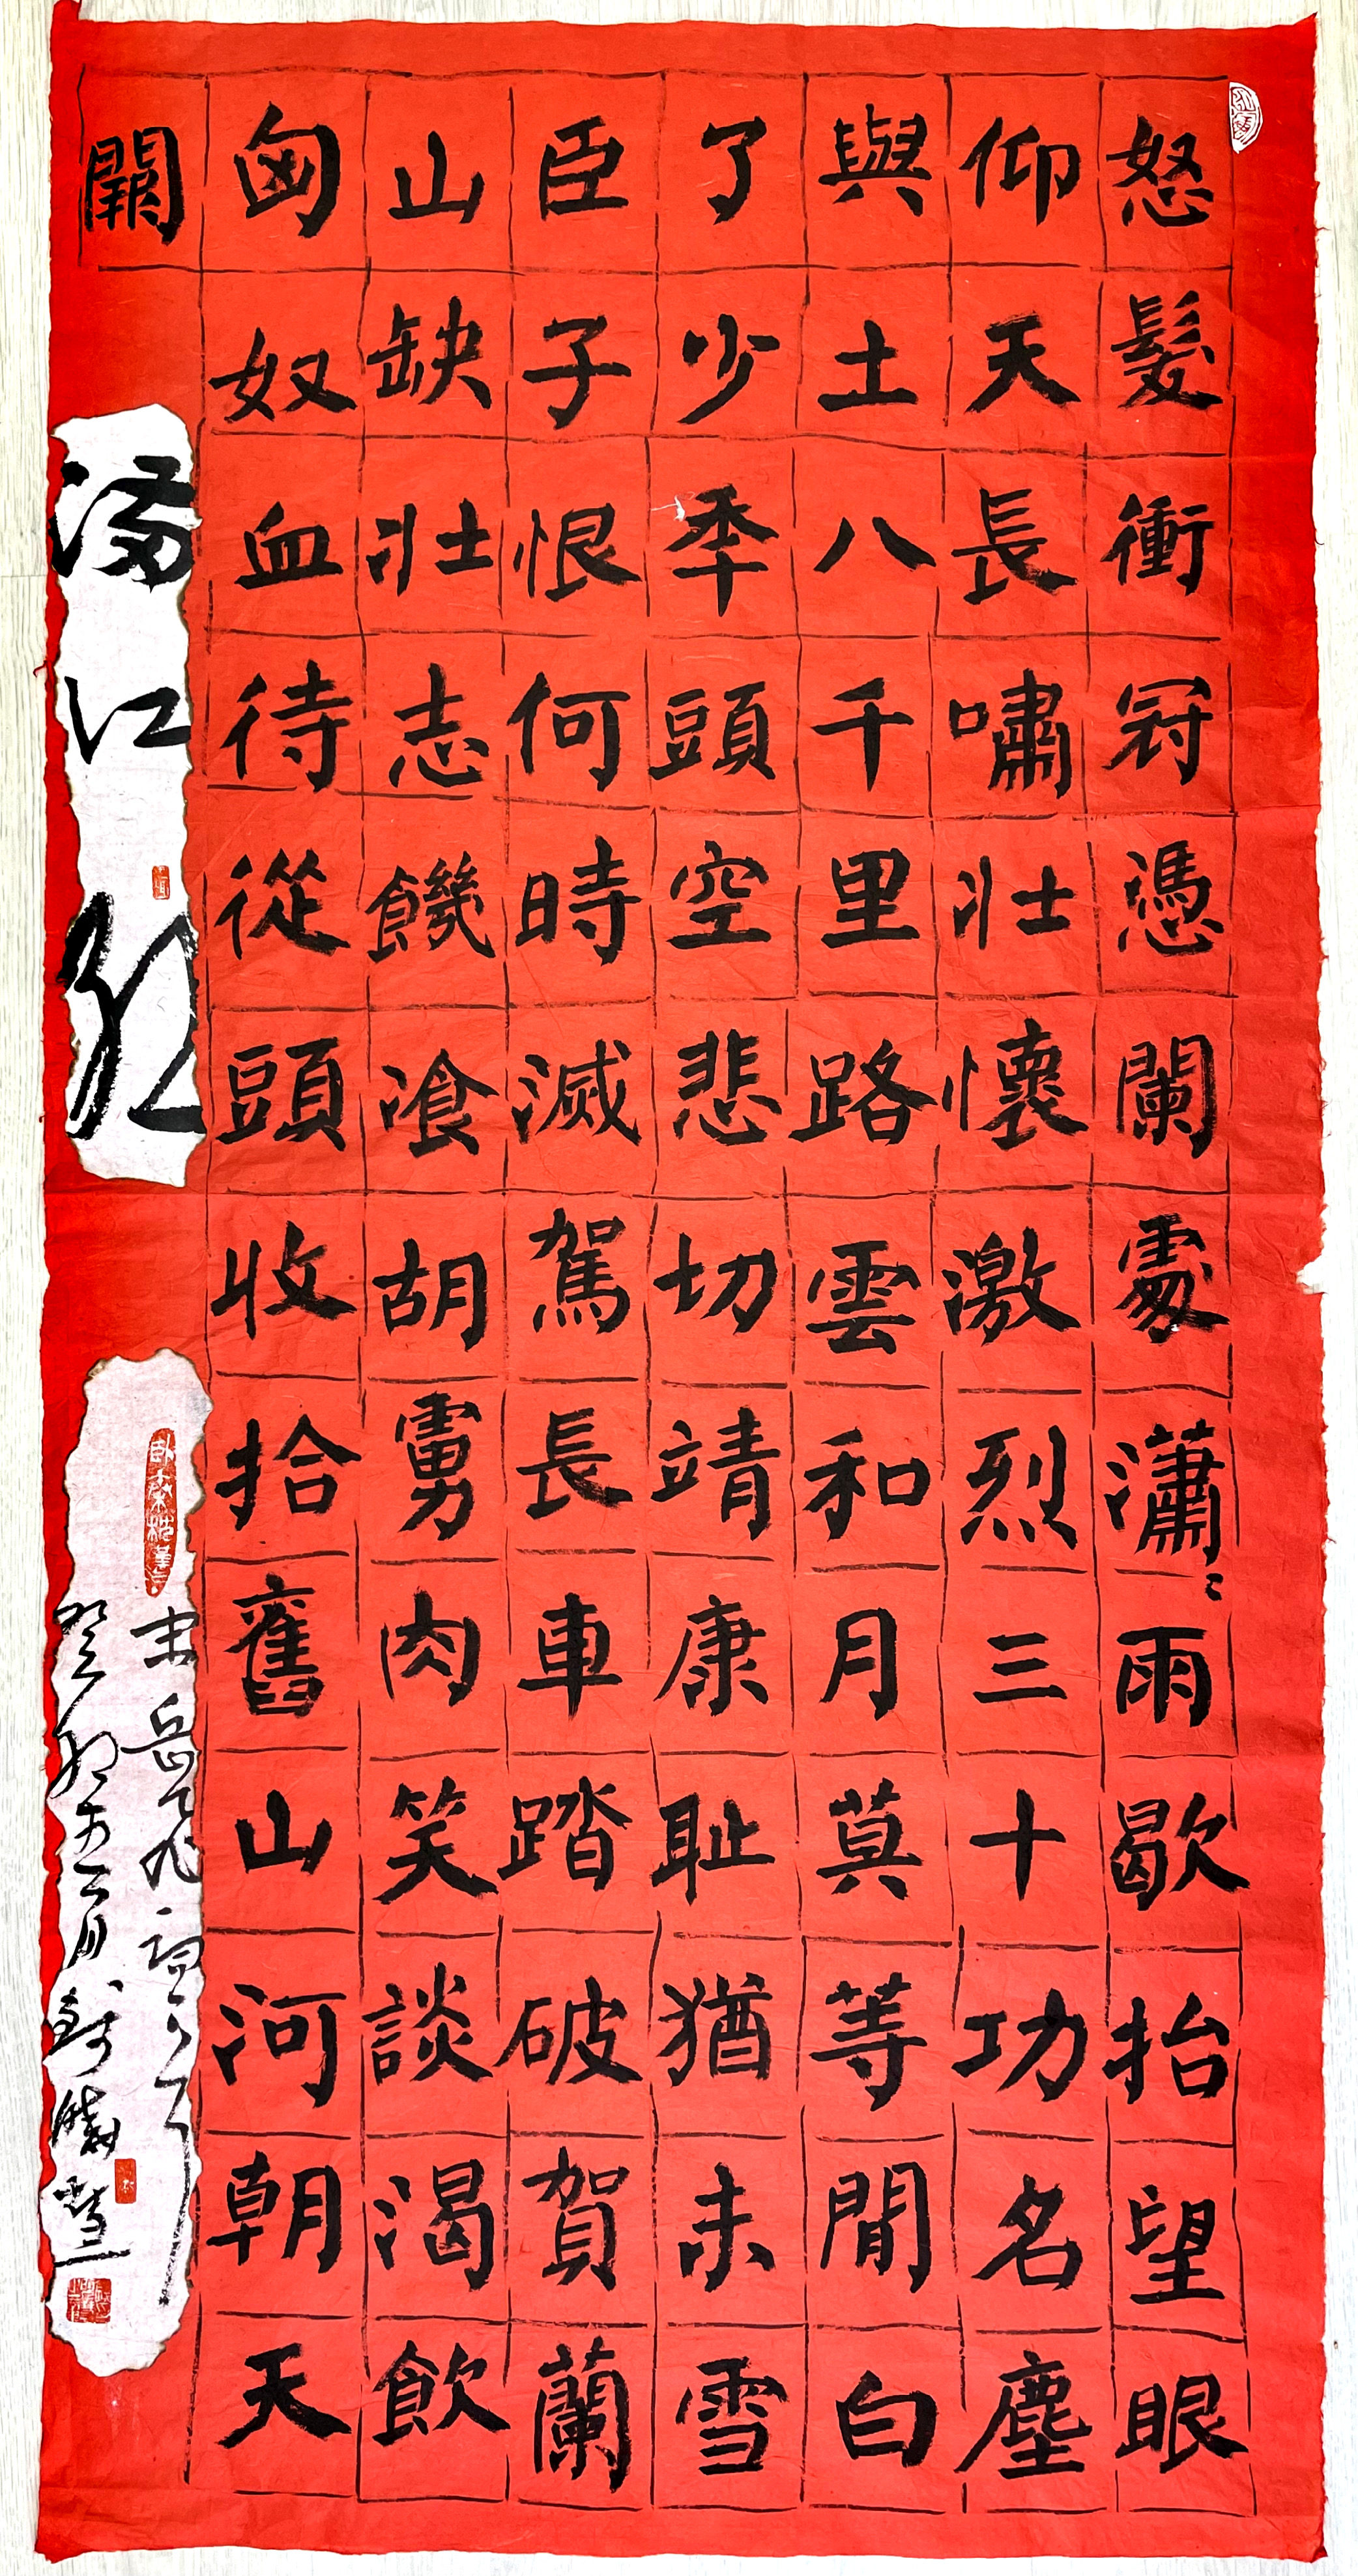 怒髮衝冠憑闌處瀟〻雨歇抬望眼
仰天長嘯壯懷激烈三十功名塵
與土八千里路雲和月莫等閒白
了少秊頭空悲切靖康耻猶未雪
臣子恨何時滅駕長車踏破賀蘭
山缺壯志饑湌胡虜肉笑談渴飲
匈奴血待從頭收拾舊山河朝天
闕
滿江紅
宋岳飛詞
癸卯五月